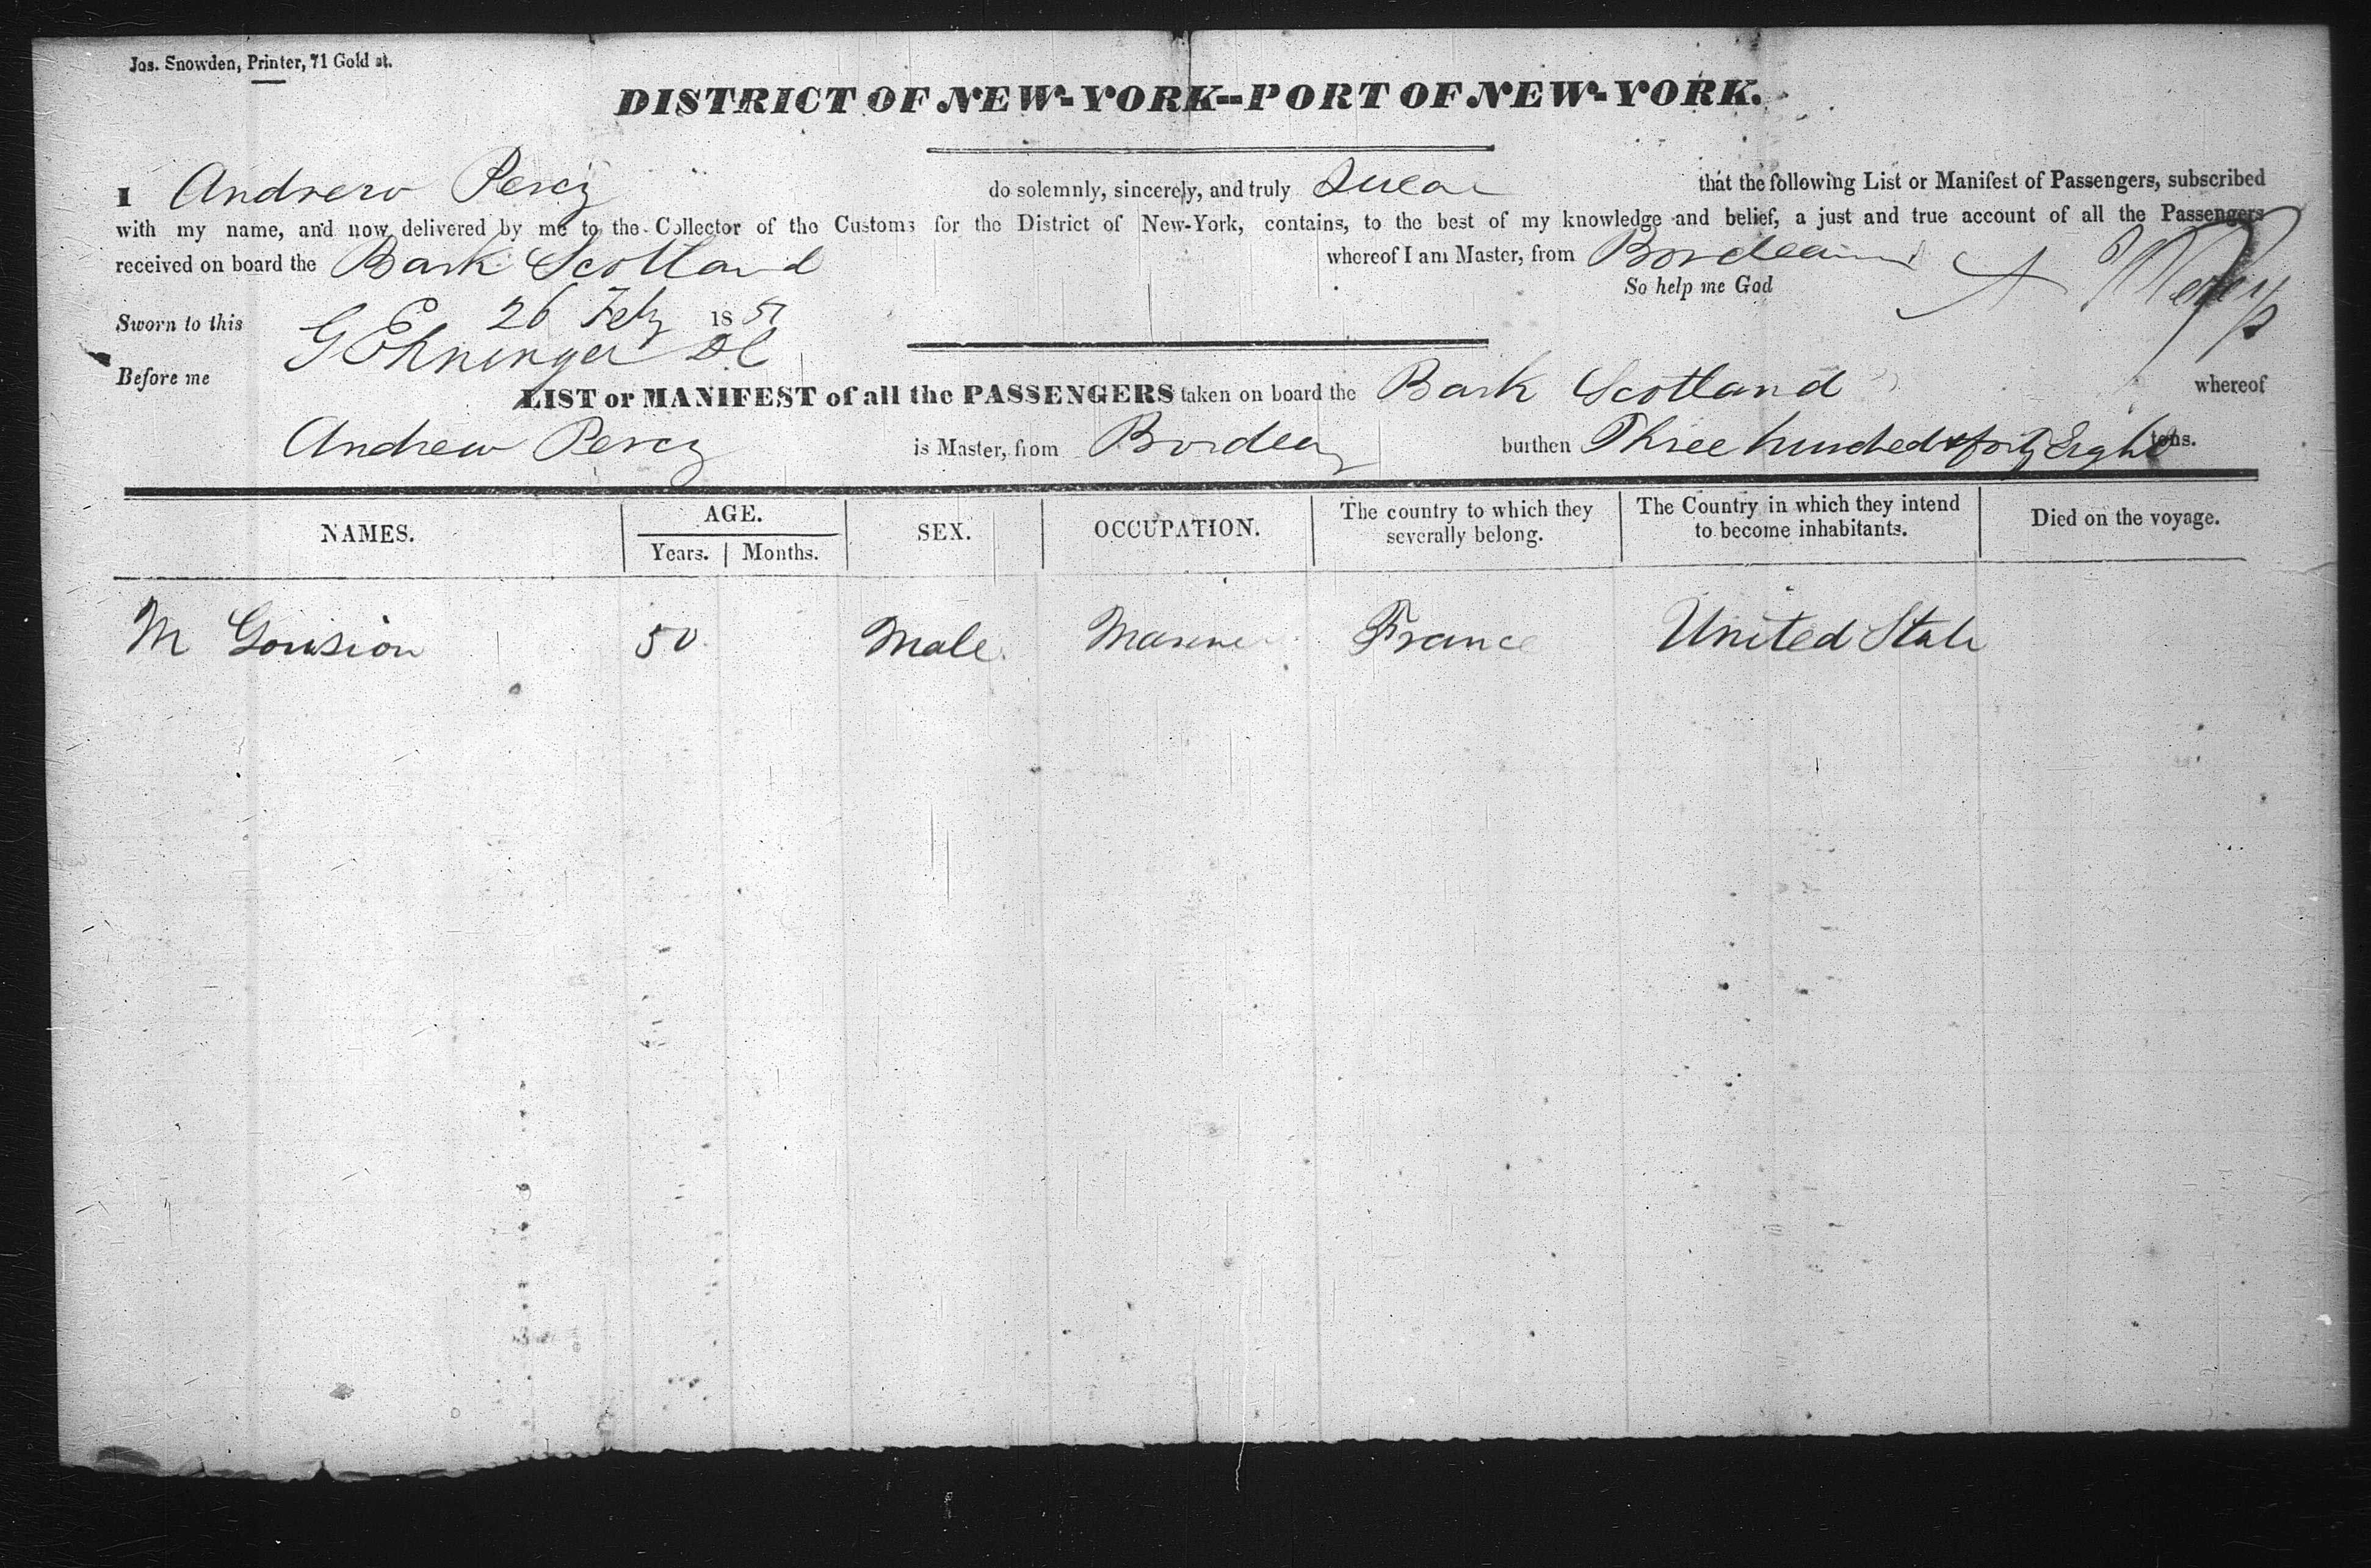 Jas. Snowden, Printer, 71 Gold st.
DISTRICT OF NEW-YORK--PORT OF NEW-YORK.
I Andrew Percy do solemnly, sincerely, and truly Swear that the following List or Manifest of Passengers, subscribed
with my name, and now delivered by me to the Collector of the Customs for the District of New-York, contains, to the best of my knowledge and belief, a just and true account of all the Passengers
received on board the Bark Scotland whereof I am Master, from Bordeaux
So help me God
Sworn to this 26 Feby 1851
Before me G Ehninger DC
LIST or MANIFEST of all the PASSENGERS taken on board the Bark Scotland whereof
Andrew Percy is Master, from Bordeaux burthen Three hundred & forty Eight tons.
NAMES. AGE. Years. Months. SEX. OCCUPATION. The country to which they severally belong. The Country in which they intend to become inhabitants. Died on the voyage.
M 50 Male Mariner France United State